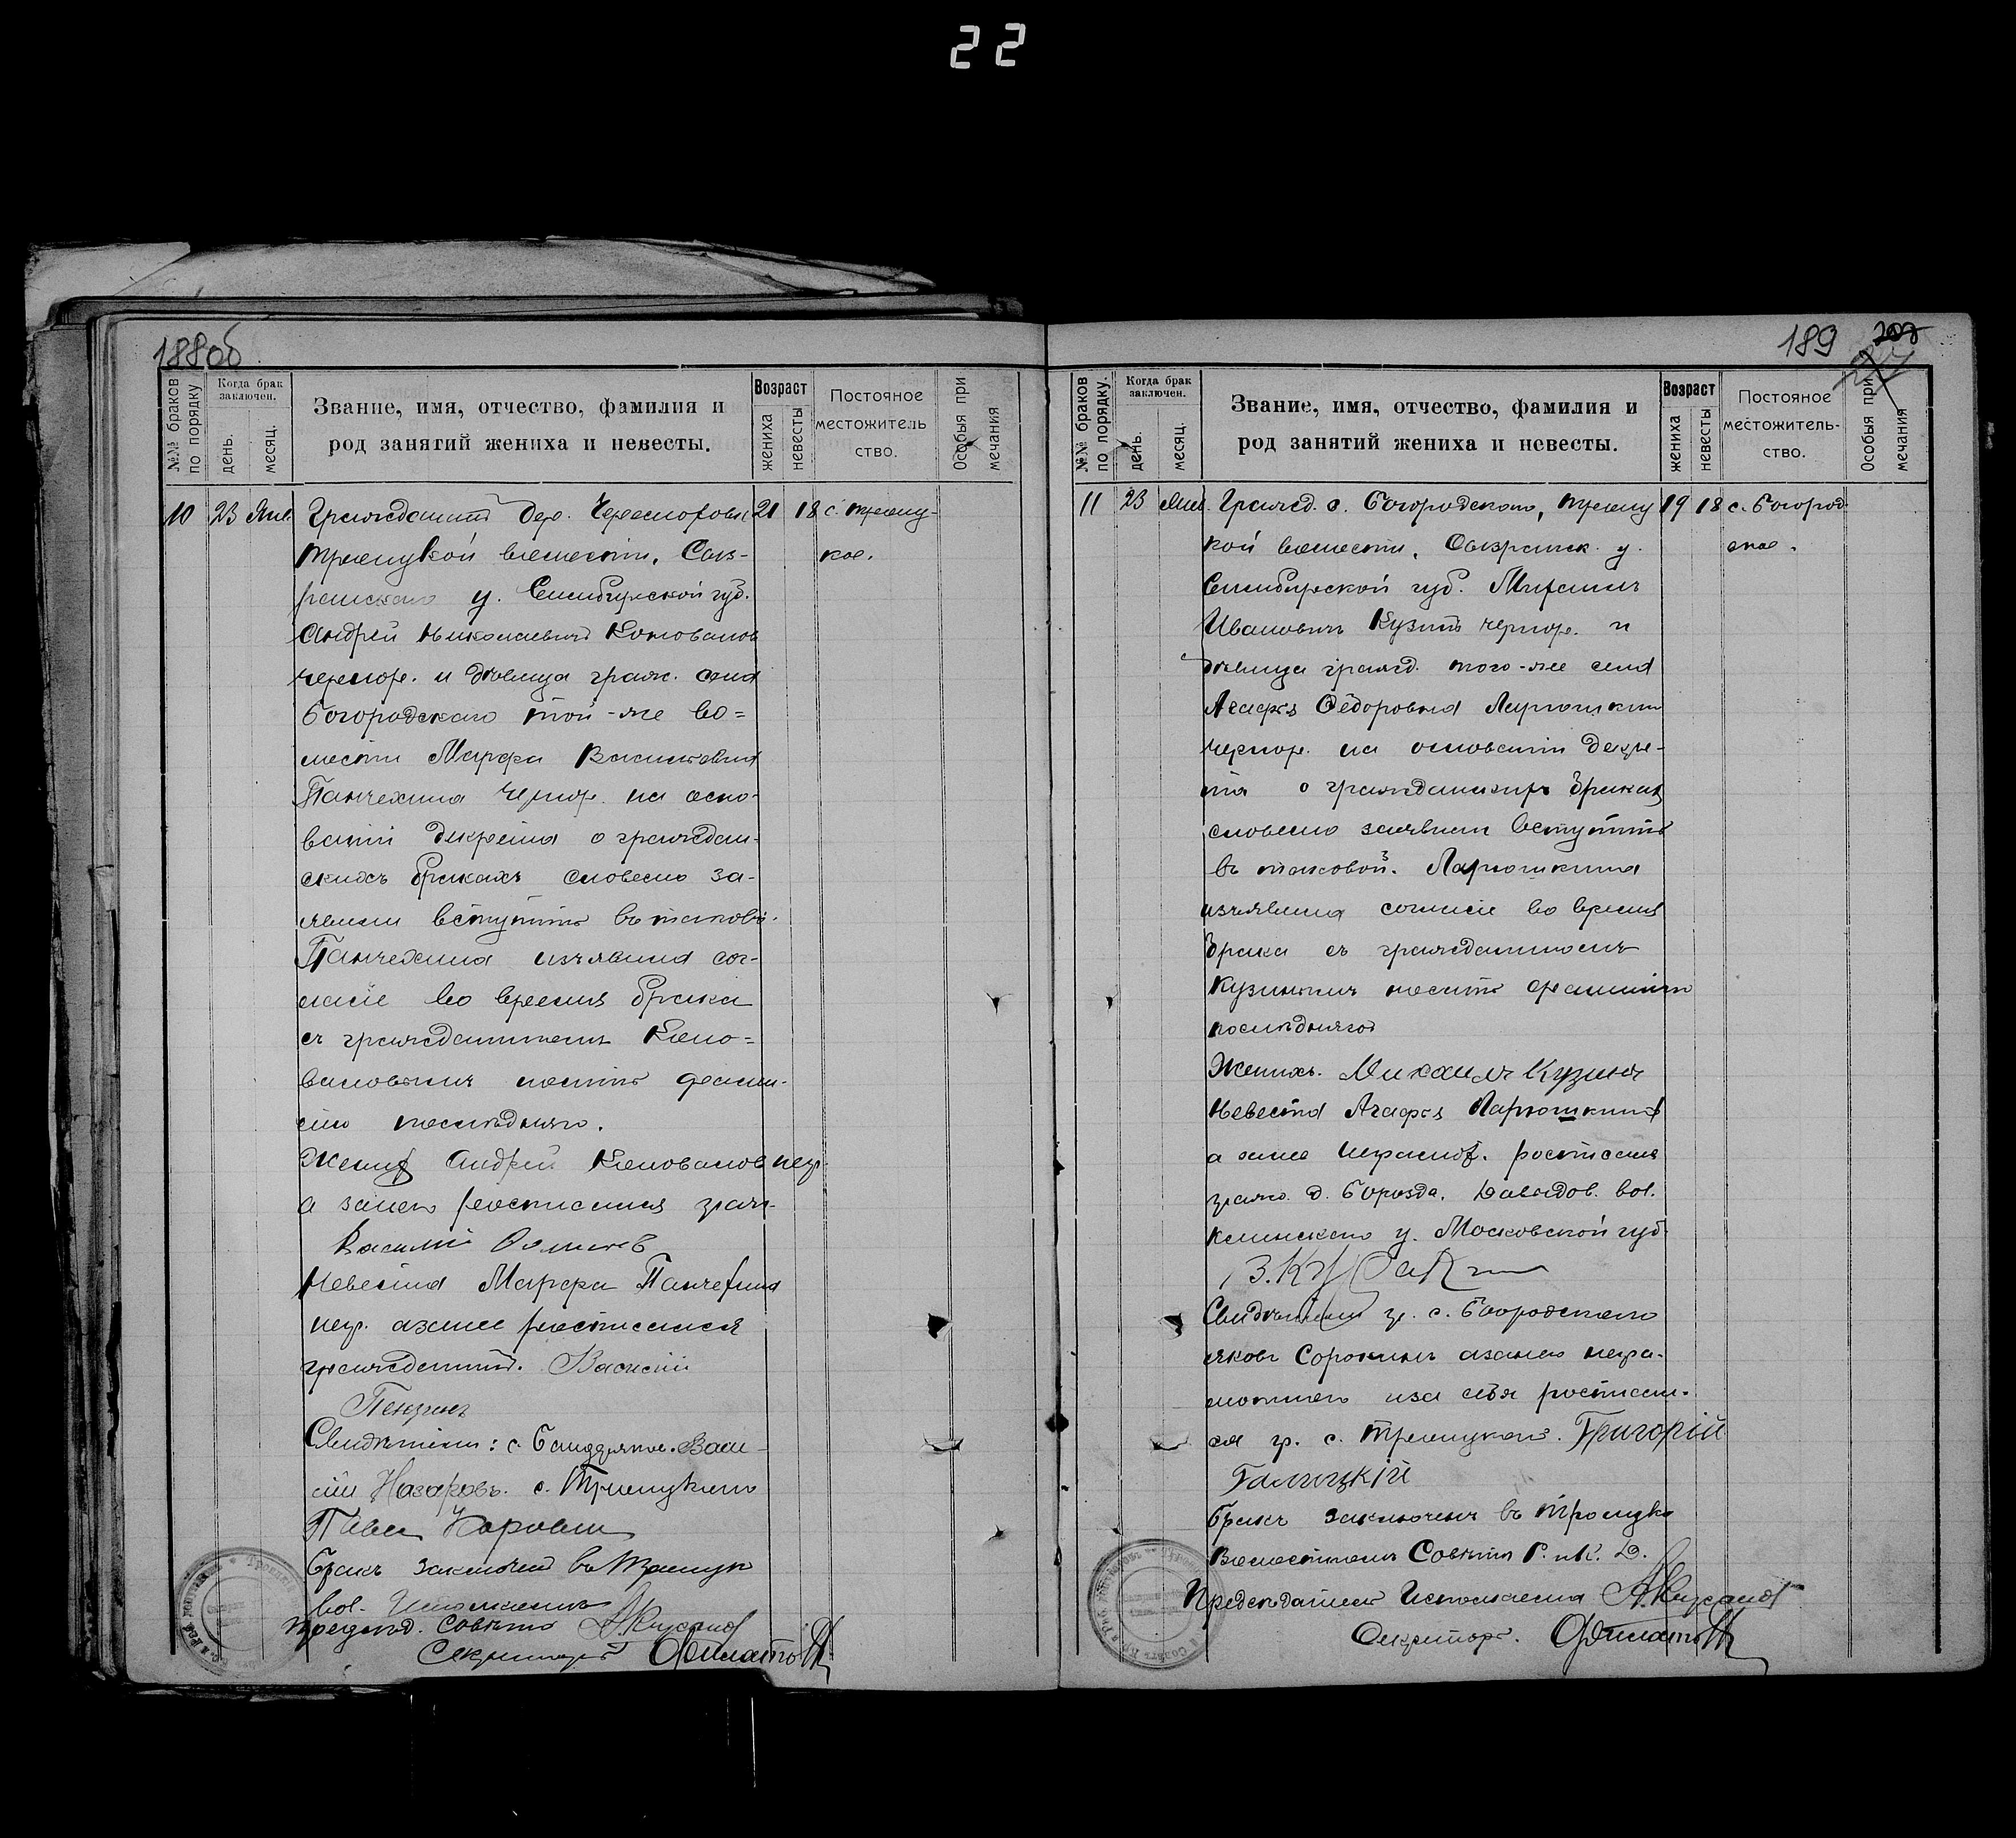 22
188об
№№ браков по порядку
Когда брак заключен.
день.
месяц.
Звание, имя, отчество, фамилия и
род занятий жениха и невесты.
Возраст
жениха
невесты
Постояное
местожитель
ство.
Особыя при
мечания
10 23 Янв. Гражданинъ дер. 21 18 с. Троиц-
Троицкой волости, Сыз-
кое.
ранскаго у. Симбирской губ.
Андрей Николаевичъ Коновалов
чернор. и девица граж. села
Богородскаго той-же во=
лости Марфа Васильевна
Панчехина чернор. на осно-
вании декрета о граждан-
скихъ бракахъ словесно за-
явили вступить въ таков.
Панчехина изъявила сог-
ласiе во время брака
съ гражданиномъ Коно=
валовымъ носить фами-
лiю последняго.
Жених Андрей Коновалов негр.
а за него росписался граж.
Василий
Невеста Марфа Панчехина
негр. а за нее росписался
гражданинъ. Василий
Пензинъ
Свидетели: с. Васи-
лий Назаровъ. с. Троицкаго
Павел
Бракъ заключен въ Троицк
вол. Исполкоме
Председ. Совета
Секретарь
189
№№ браков по порядку.
Когда брак заключен.
день.
месяц.
Звание, имя, отчество, фамилия и
род занятий жениха и невесты.
Возраст
жениха
невесты
Постояное
местожитель-
ство.
Особыя при
мечания
11 23 Янв. Гражд. с. Богородскаго, Троиц 19 18 с. Богород
кой волости, Сызранск. у.
ское.
Симбирской губ. Михаилъ
Ивановичъ Кузинъ чернор. и
девица гражд. того-же села
Агафья Федоровна Ларюшкин
чернор. на основании декре-
та о гражданскихъ браках
словесно заявили вступить
въ таковой. Ларюшкина
изъявила согласiе во время
брака съ гражданиномъ
Кузинымъ носить фамилiю
последняго
Женихъ. Михаилъ Кузинъ
Невеста Агафья Ларюшкина
а за нее неграмот. росписался
граж. д. Борозда, Давыдов. вол.
Клинскаго у. Московской губ.
Свидетели гр. с. Богородскаго
Яковъ Сорокинъ а за него негра-
мотнаго и за себя росписал-
ся гр. с. Троицкаго. Григорiй
Галицкiй
Бракъ заключенъ въ Троицко
Волостномъ Совете Р. и К. Д.
Председатель Исполкома
Секретарь.